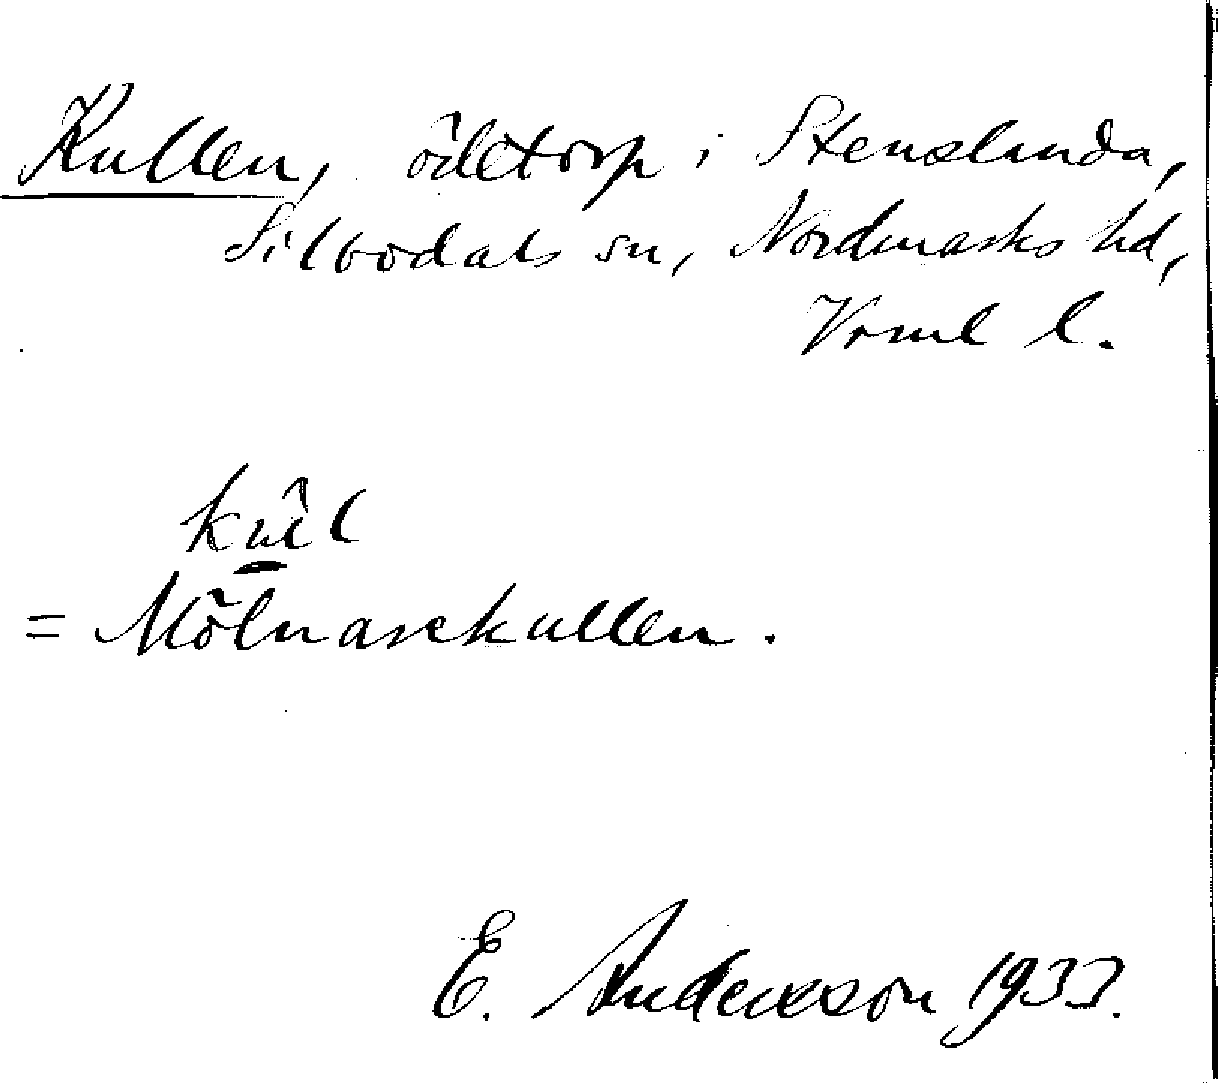 Kullen, ödetorp i Stenslanda,
Silbodals sn, Nordmarks hd,
Vrml l.
kul̂l
= Mölnarekullen.
E. Andersson 1933.